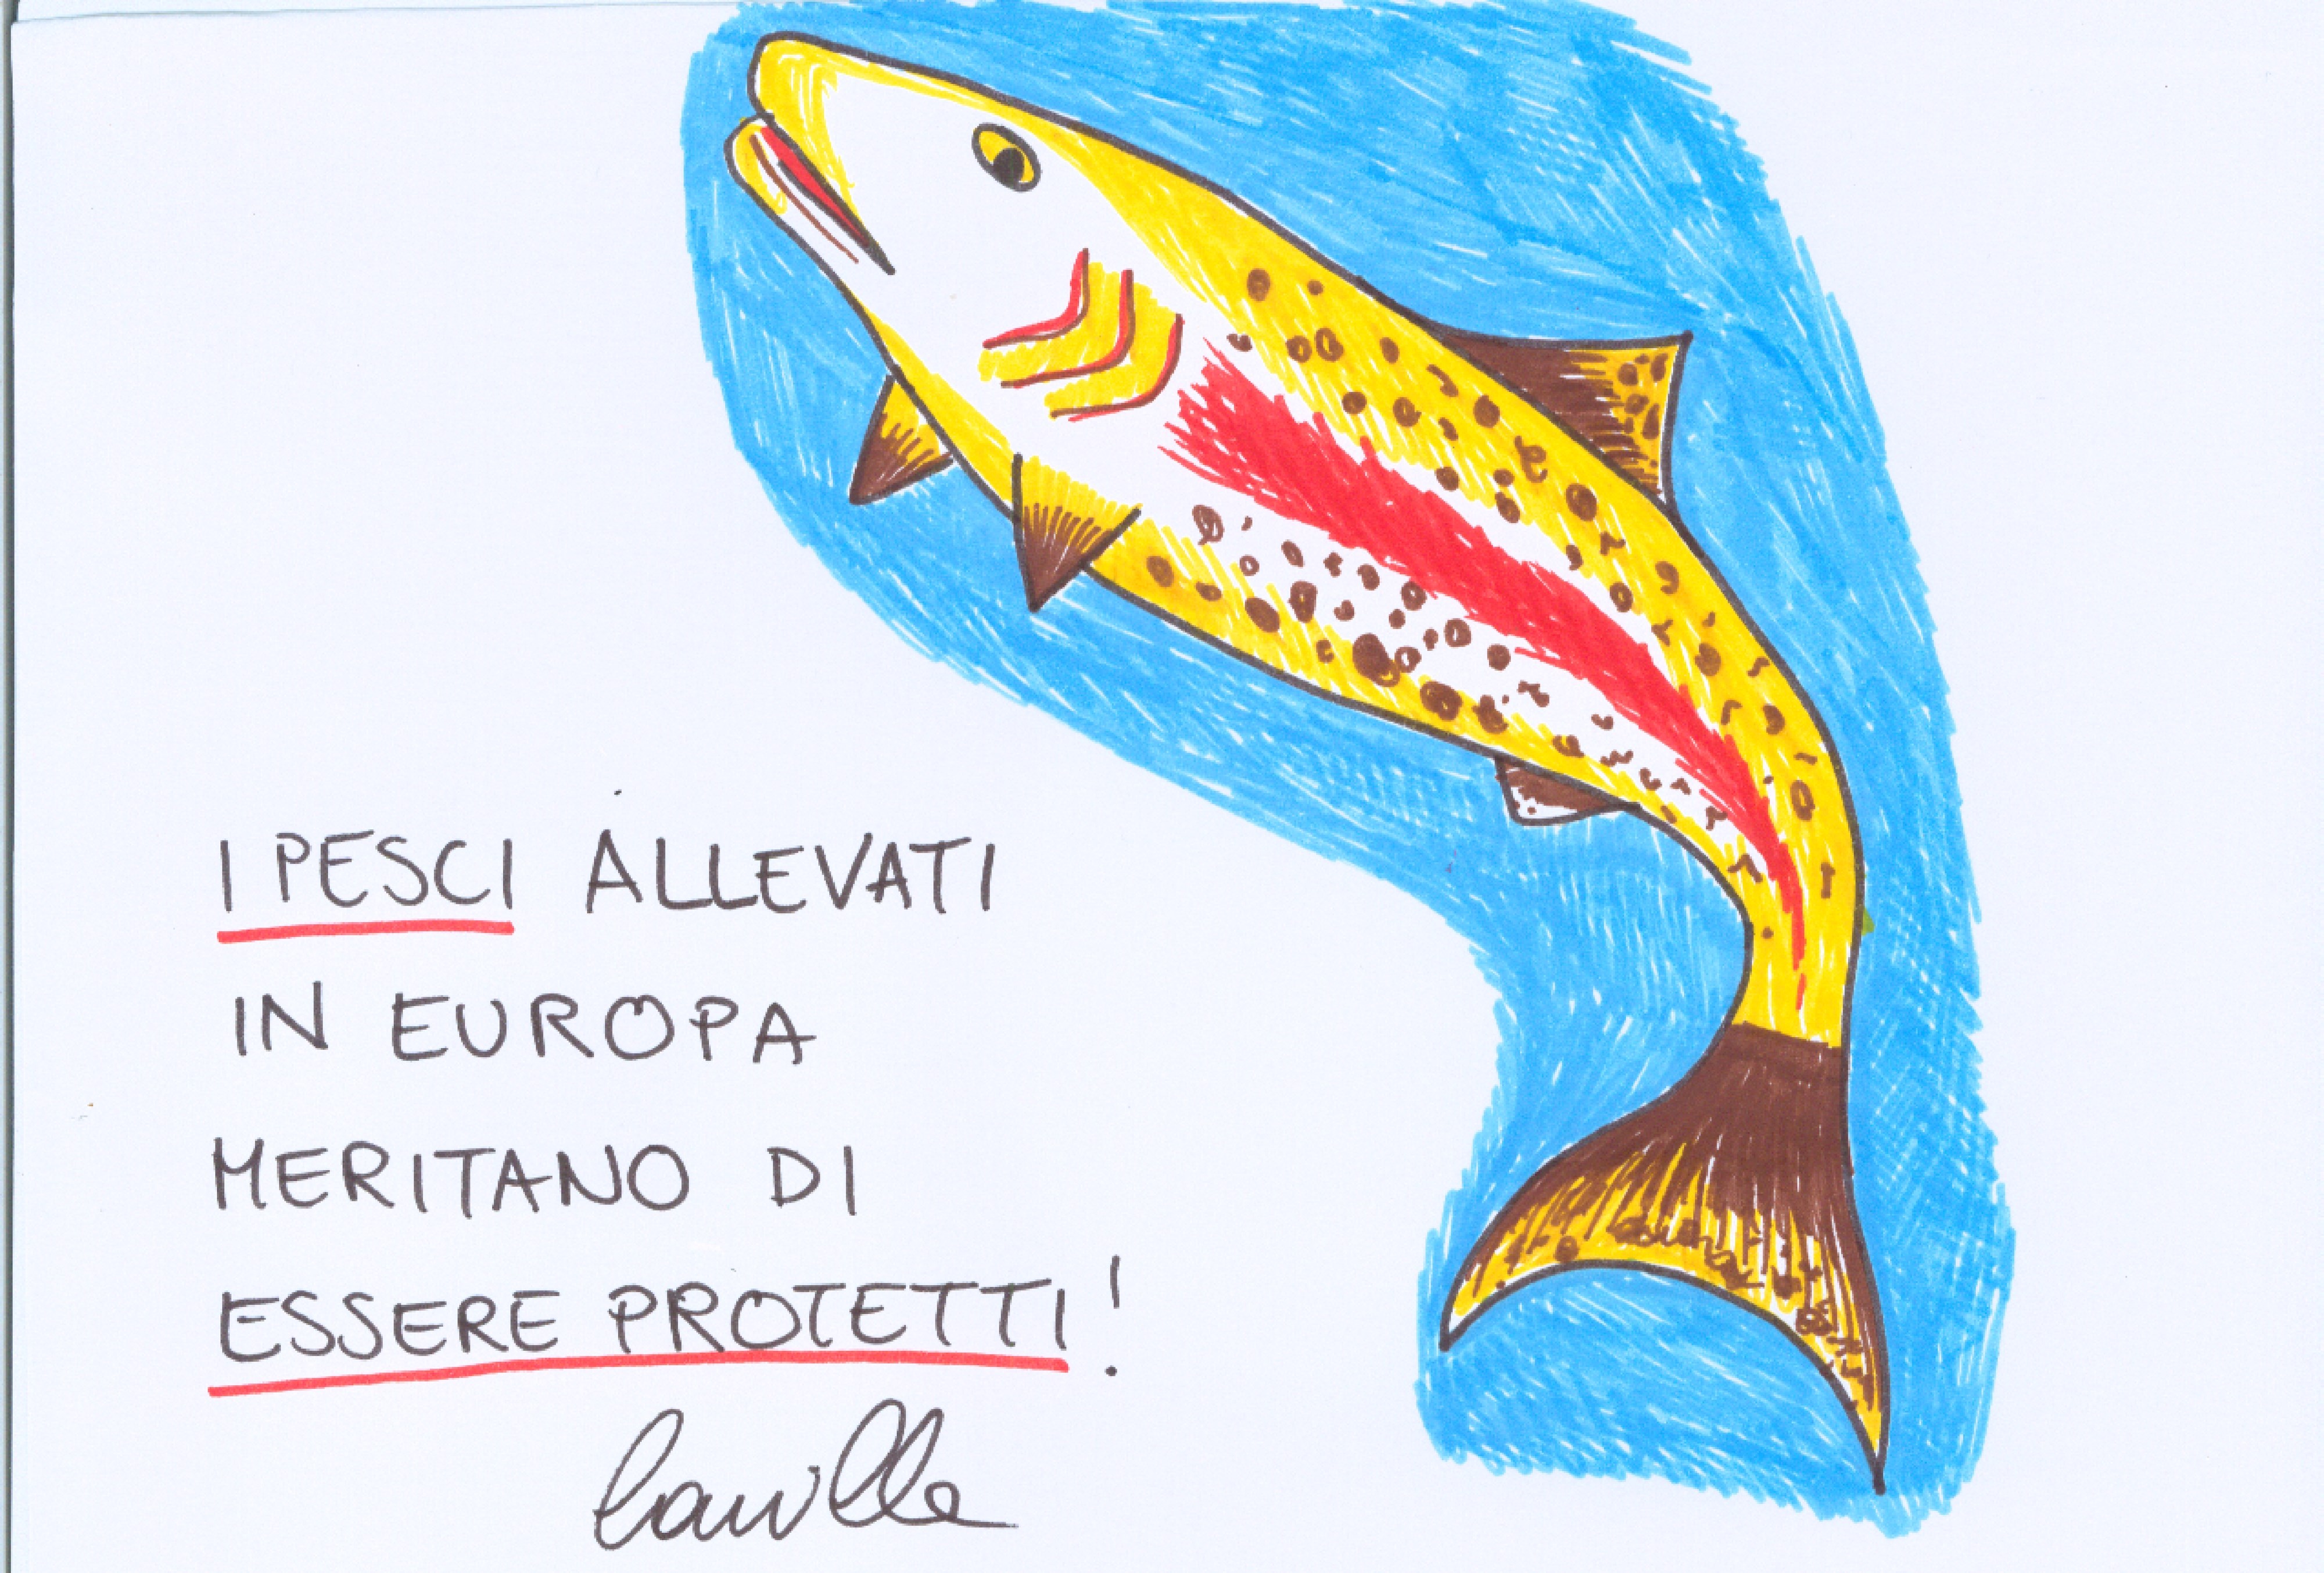 I PESCI ALLEVATI
IN EUROPA
MERITANO DI
ESSERE PROTETTI!
Camilla